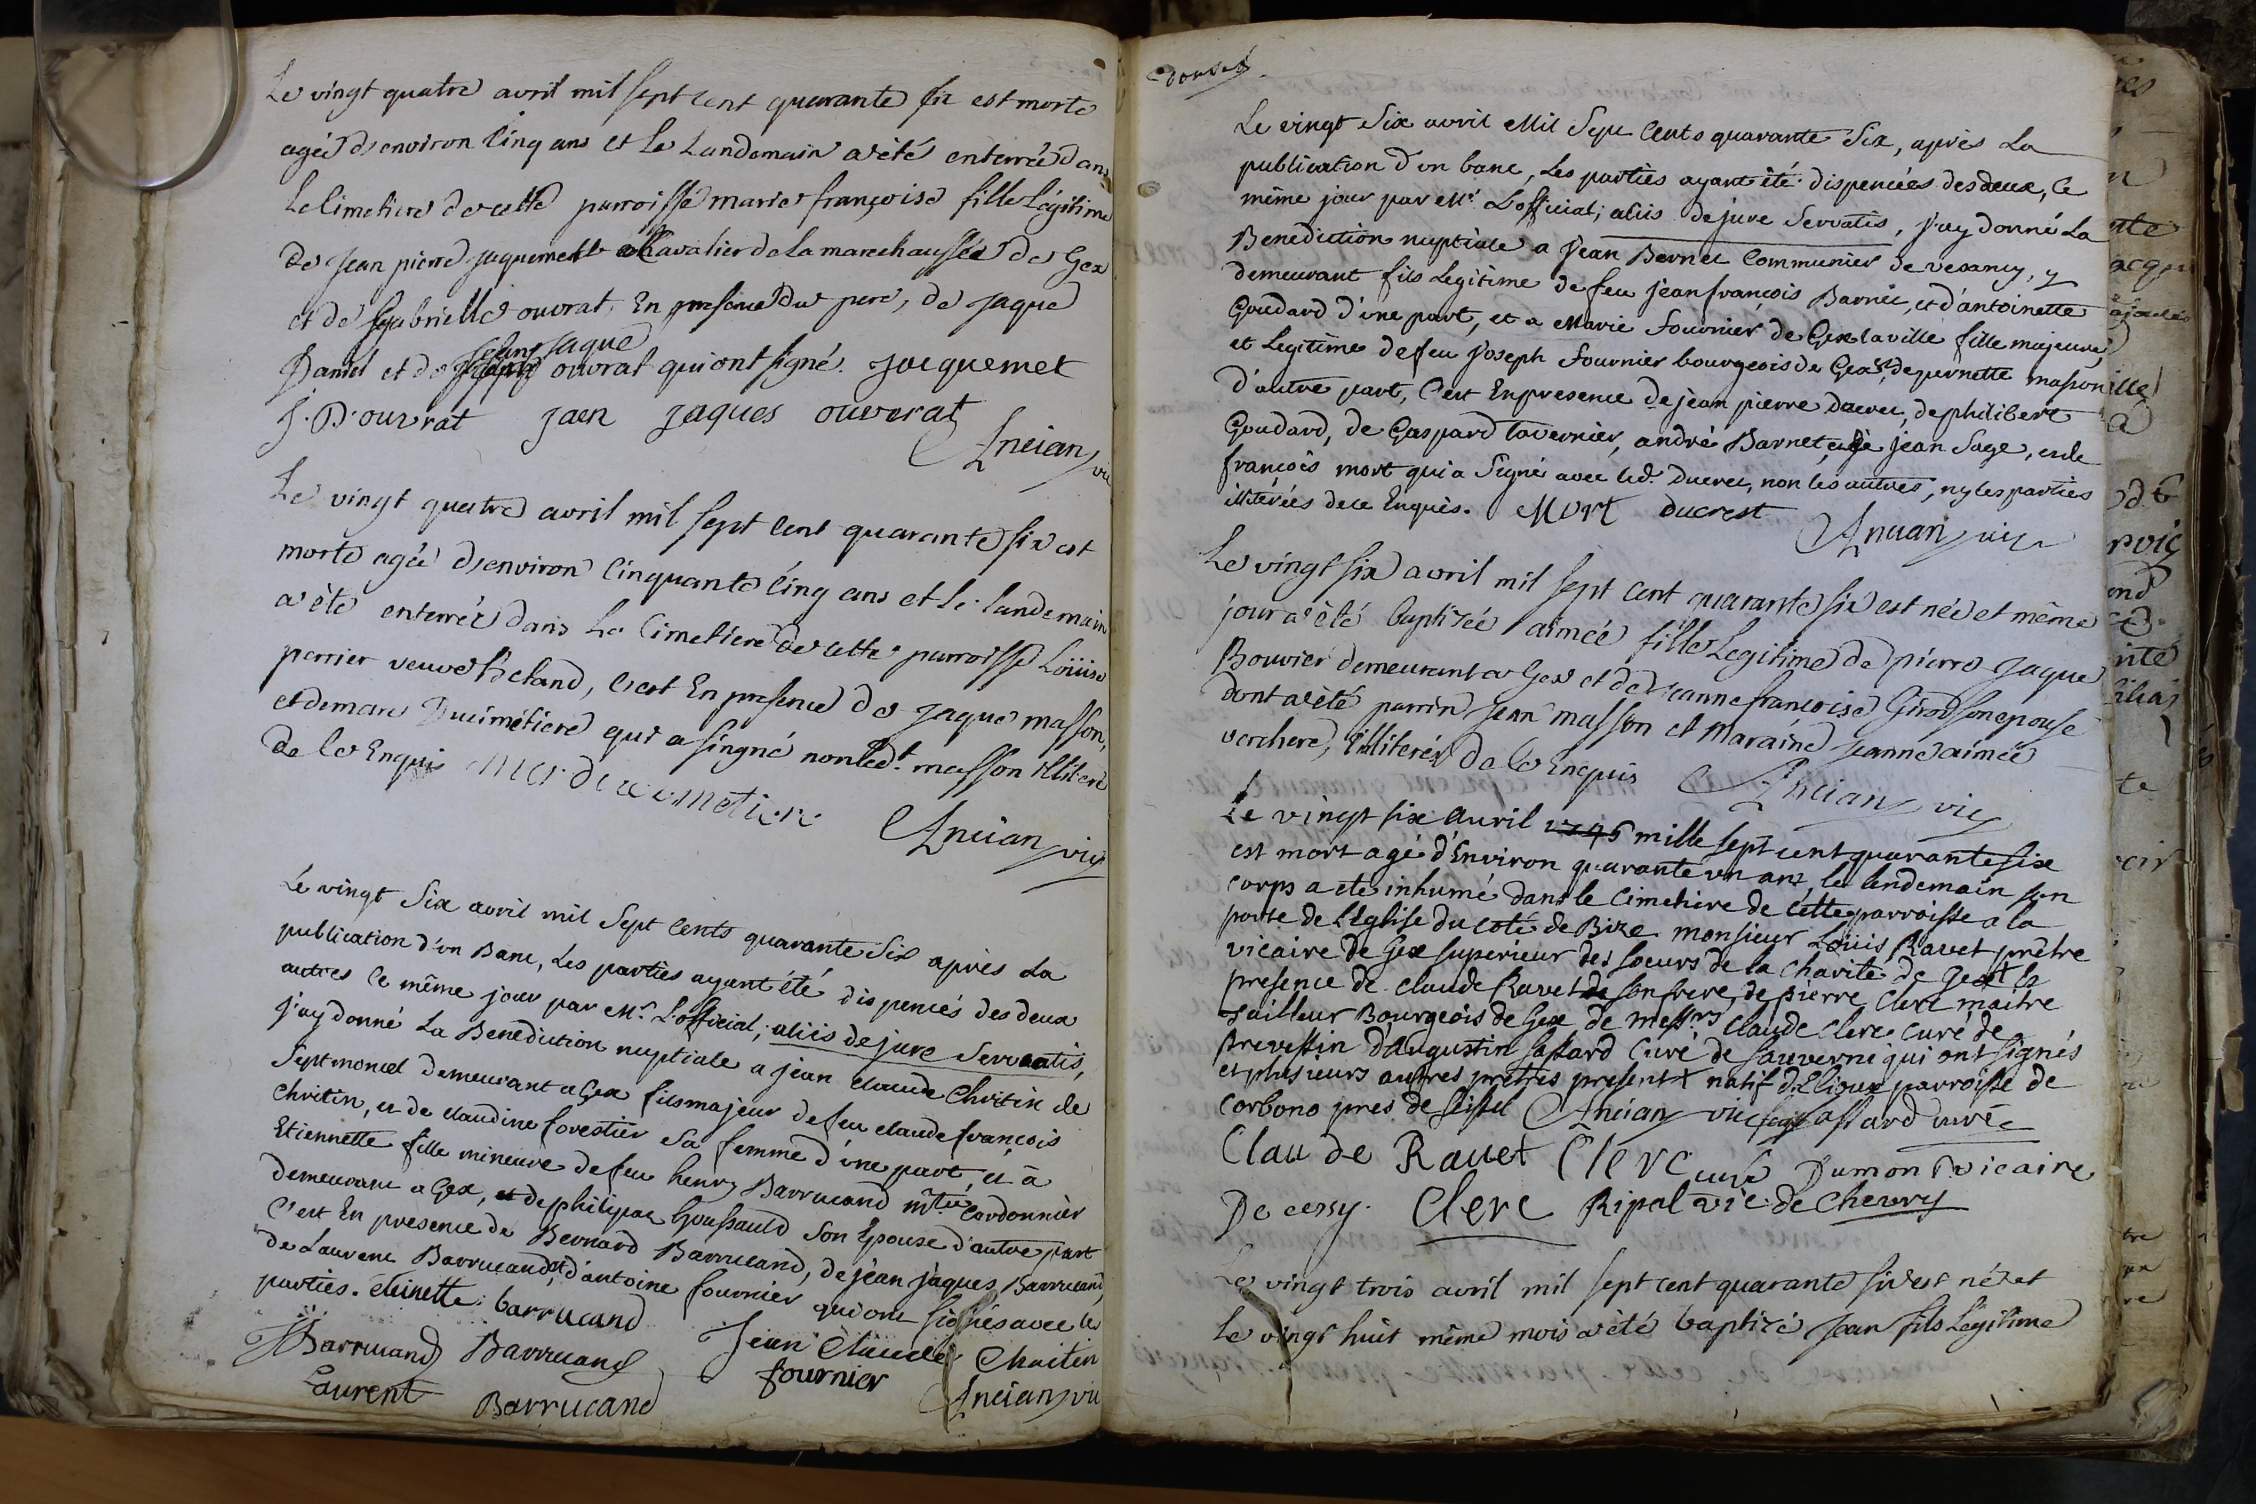 Le vingt quatre avril mil sept cent quarante six est morte
agée d'environ Cinq ans et le Landemain a été enterrée dans
Le Cimetiere de cette parroisse marie françoise fille Légitime
de Jean pierre Jaquemet Cavalier de La marechaussée de Gex
et de gabrielle ouvrat, En presence du pere, de Jaque
Jean Jaque
Daniel et de ouvrat qui ont signé. Jacquemet
J. D. ouvrat Jaen Jaques ouverat
Ancian vic
Le vingt quatre avril mil sept cent quarante six est
morte agée d'environ Cinquante Cinq ans et le landemain
a été enterrée dans Le Cimetiere de cette parroisse Loüise
perrier veuve, C'est En presence de Jaque masson,
et de marc Ducimétiere qui a singné non led.t masson illiteré
de ce Enquis
Ancian vic
Le vingt Six avril mil Sept Cents quarante Six après La
publication d'un Banc, Les parties ayant été dispencés des deux
autres Ce même jour par Mr. L'official; aliis de jure Servatis,
j'ay donné La Benediction nuptiale a jean claude Chritin de
Septmoncel demeurant a Gex fils majeur de feu claude françois
Chritin, et de claudine forestier sa femme d'une part, et à
Etiennette fille mineure de feu henry Barrucand mtre Cordonnier
demeurant a Gex, et de philipae Goussauld Son Epouse d'autre part
C'est En presence de Bernard Barrucand, de jean jaques Barrucand
de Laurent Barrucand, et d'antoine fournier qui ont signés avec les
parties. etinette barrucand Jean Claude Chritin
JBarrucand Barrucand fournier
Laurent Barrucand Ancian vic
Le vingt Six avril Mil Sept Cents quarante Six, après La
publication d'un banc, Les parties ayant été dispencées des deux, Ce
même jour par Mr. L'official; aliis de jure Servatis, j'ay donné La
Benediction nuptiale a Jean Bernet Communier de vesancy, y
demeurant fils Legitime de feu jean françois Barnet, et d'antoinette
Goudard d'une part, et a Marie fournier de Gex la ville fille majeure
et Legitime de feu Joseph fournier bourgeois de Gex, & de pernette masson
d'autre part, C'est En presence de jean pierre Ducret, de philibert
Goudard, de Gaspard Tavernier, andré Barnet, et de jean Sage, et de
françois mort qui a Signé avec led. Ducret, non les autres, ny les parties
illitérées de ce Enquis. Mort ducrest
Ancian vic
Le vingt six avril mil sept cent quarante six est née et même
jour a été baptizée aimée fille Legitime de pierre Jaque
Bouvier demeurant a Gex et de Jeanne françoise Girod son epouse
dont a été parrin Jean masson et Maraine Jeanne aimée
verchere, Illiterés de ce Enquis Ancian vic
Le vingt six avril 1746 mille sept cent quarante six
est mort agé d'Environ quarante un ans, le lendemain son
corps a eté inhumé dans le Cimetiere de cette parroisse a la
porte de l'Eglise du coté de Bize monsieur Loüis Ravet prêtre
vicaire de Gex superieur des soeurs de la charité de Gex + En
presence de claude Ravet son frere, de pierre Clerc maitre
Tailleur Bourgeois de Gex, de messrs claude clerc curé de
Prevessin d'augustin sassard Curé de sauverni qui ont signés
et plusieurs autres pretres present + natif d'Elioux parroisse de
Corbono pres de seissel Ancian vic sassard curé
Claude Ravet Clerc curé Dumont vicaire
De cessy. Clerc Ripal vic: de Chevry
Le vingt trois avril mil sept cent quarante six est né et
Le vingt huit même mois a été baptizé Jean fils Légitime